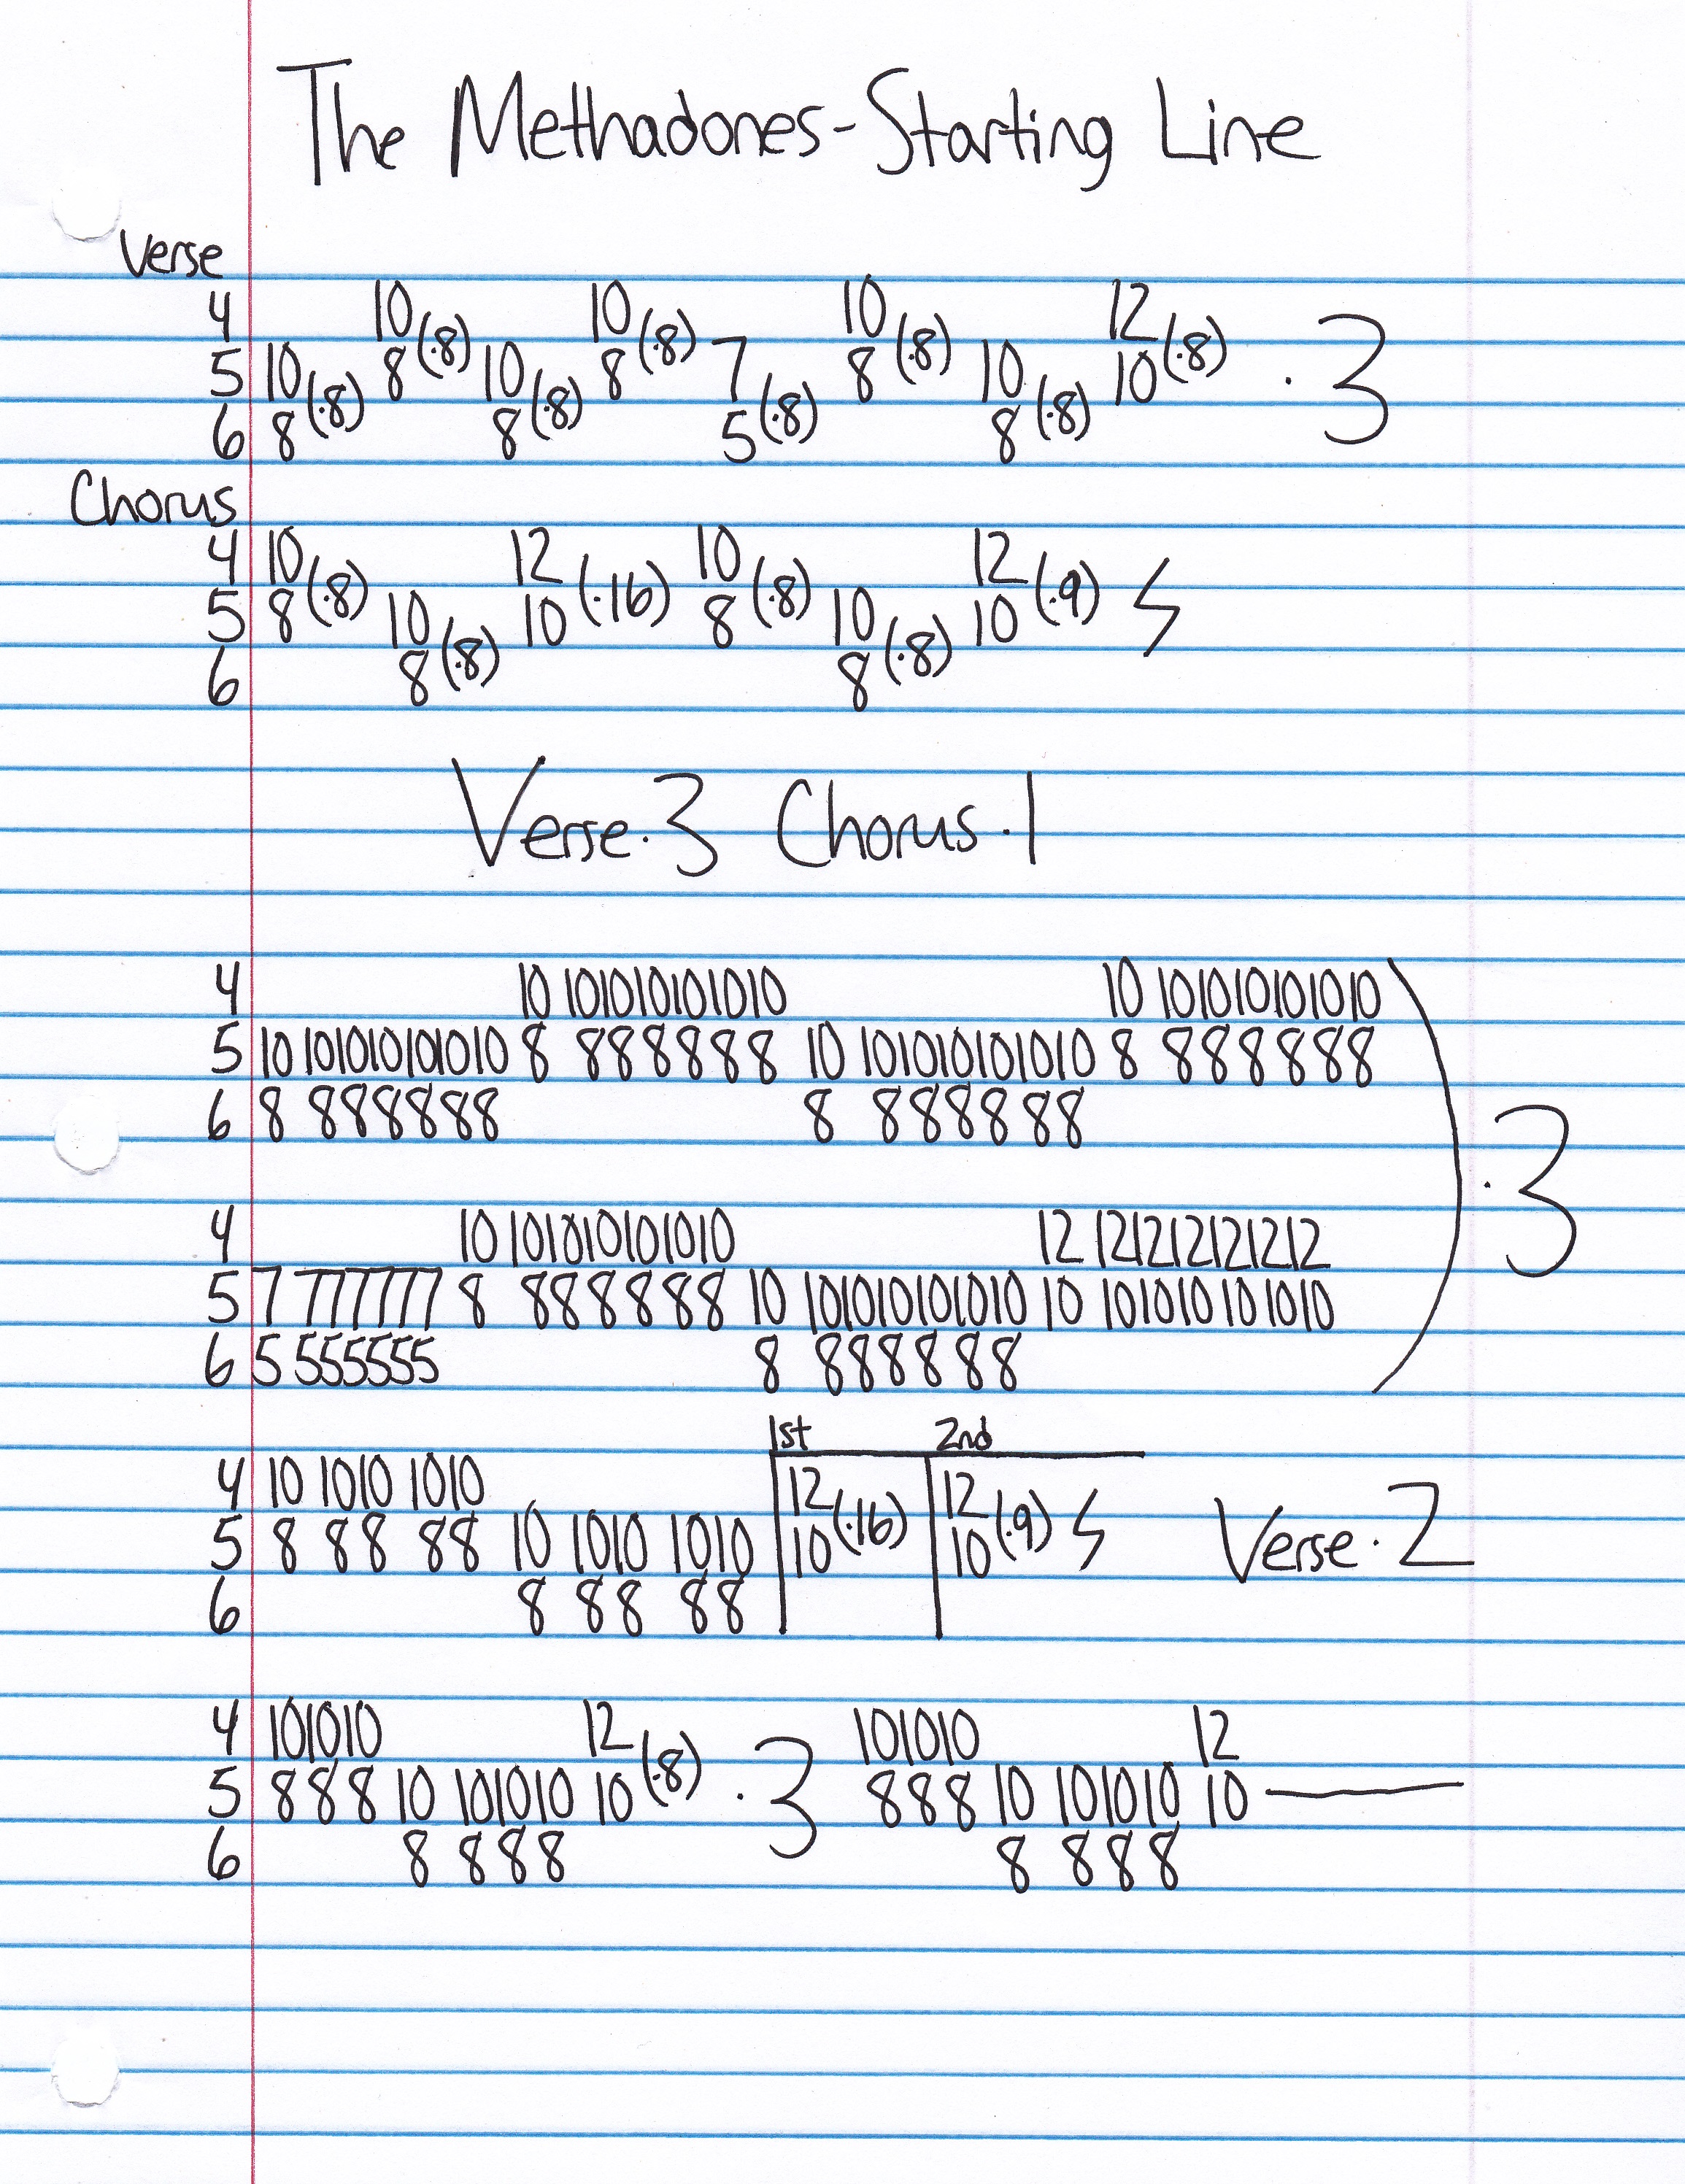 The Methadones-Starting Line
Verse
4 10(·8) 10(·8) 10(·8) 12(·8)
5 10(·8) 8 10(·8) 8 7 8 10 10 ·3
6 8 8 5(·8) 8(·8)
Chorus
4 10(·8) 12(·16) 10(·8) 12(·9)
5 8 10 10 8 10 10
6 8(·8) 8(·8)
Verse·3 Chorus·1
4 10 101010101010 10 101010101010
5 10 101010101010 8 888888 10 101010101010 8 888888
6 8 888888 8 888888
·3
4 10 101010101010 12 121212121212
5 7 777777 8 888888 10 101010101010 10 101010101010
6 5 555555 8 888888
1st 2nd
4 10 1010 1010 12(·16) 12(·9) Verse·2
5 8 88 88 10 1010 1010 10 10
6 8 88 88
4 101010 12(·8) ·3 101010 12
5 888 10 101010 10 888 10 101010 10
6 8 888 8 888